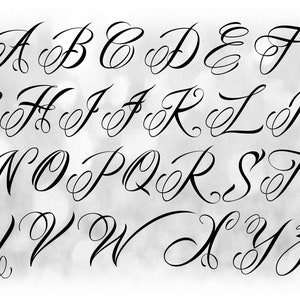 A B C D E F
H I J K L
N O P Q R S T
U V W X Y Z